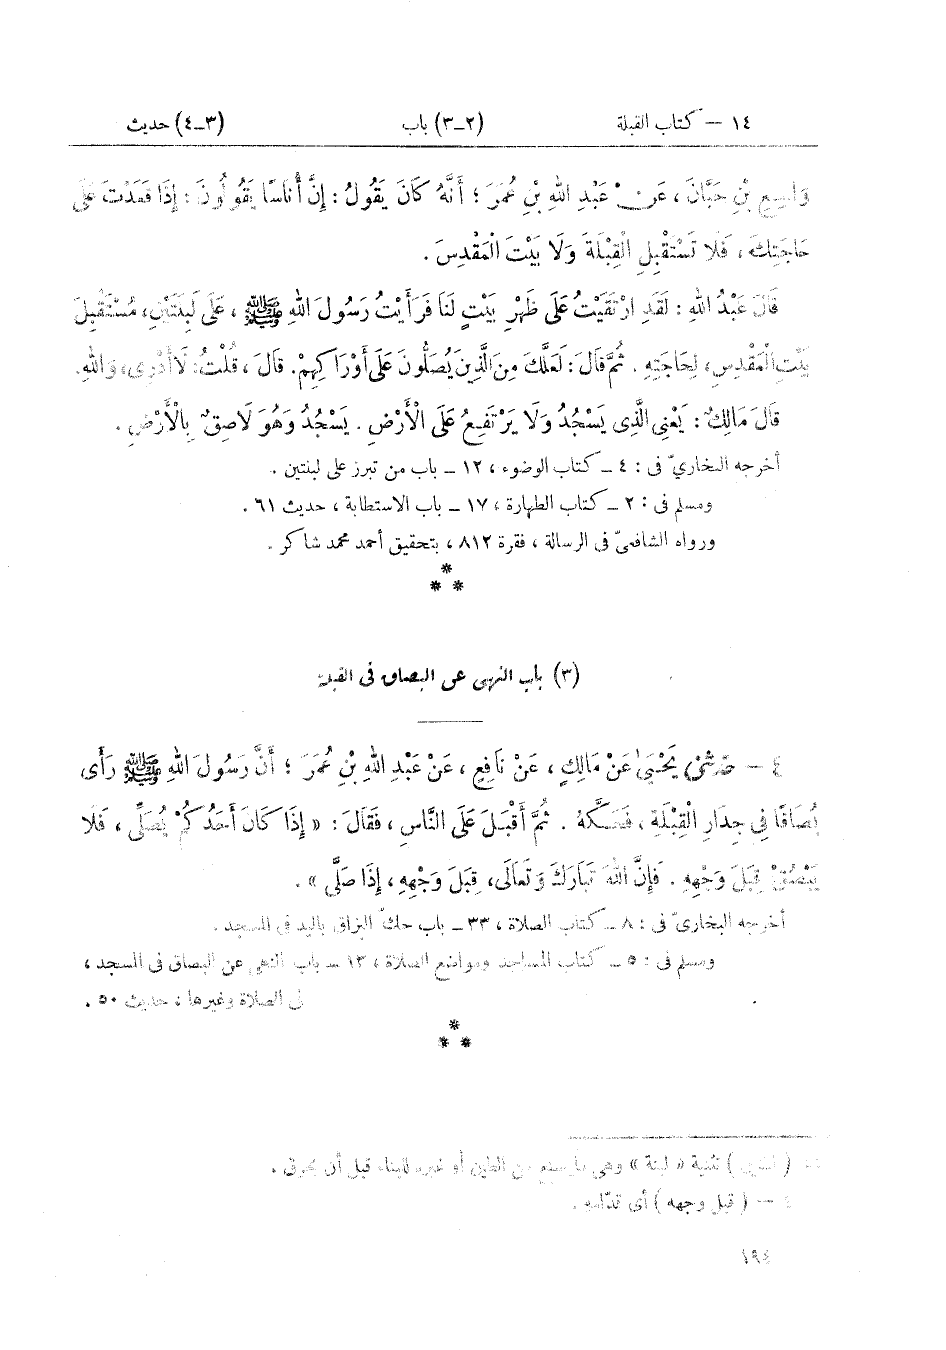 ١٤ — كتاب القبلة (٢ـ٣) باب (٣ـ٤) حديث
وَاسِعِ بْنِ حَبَّانَ ، عَنْ عَبْدِ اللهِ بْنِ عُمَرَ ؛ أَنَّهُ كَانَ يَقُولُ : إِنَّ أُنَاسًا يَقُولُونَ : إِذَا قَعَدْتَ عَلَى
حَاجَتِكَ ، فَلَا تَسْتَقْبِلِ الْقِبْلَةَ وَلَا بَيْتَ الْمَقْدِسِ .
قَالَ عَبْدُ اللهِ : لَقَدِ ارْتَقَيْتُ عَلَى ظَهْرِ بَيْتٍ لَنَا فَرَأَيْتُ رَسُولَ اللهِ ﷺ ، عَلَى لَبِنَتَيْنِ، مُسْتَقْبِلَ
بَيْتِ الْمَقْدِسِ، لِحَاجَتِهِ . ثُمَّ قَالَ : لَعَلَّكَ مِنَ الَّذِينَ يُصَلُّونَ عَلَى أَوْرَاكِهِمْ. قَالَ ، قُلْتُ: لَا أَدْرِى، وَاللهِ.
قَالَ مَالِكٌ : يَعْنِى الَّذِى يَسْجُدُ وَلَا يَرْتَفِعُ عَلَى الْأَرْضِ . يَسْجُدُ وَهُوَ لَاصِقٌ بِالْأَرْضِ .
أخرجه البخارىّ فى : ٤ ـ كتاب الوضوء ، ١٢ ـ باب من تبرز على لبنتين .
ومسلم فى : ٢ ـ كتاب الطهارة ، ١٧ ـ باب الاستطابة ، حديث ٦١ .
ورواه الشافعىّ فى الرسالة ، فقرة ٨١٢ ، بتحقيق أحمد محمد شاكر .
*
* *
(٣) باب النهى عن البصاق فى القبلة
٤ — حَدَّثَنِى يَحْيَىٰ عَنْ مَالِكٍ ، عَنْ نَافِعٍ ، عَنْ عَبْدِ اللهِ بْنِ عُمَرَ ؛ أَنَّ رَسُولَ اللهِ ﷺ رَأَى
بُصَاقًا فِى جِدَارِ الْقِبْلَةِ ، فَحَكَّهُ . ثُمَّ أَقْبَلَ عَلَى النَّاسِ ، فَقَالَ : « إِذَا كَانَ أَحَدُكُمْ يُصَلِّى ، فَلَا
يَبْصُقْ قِبَلَ وَجْهِهِ . فَإِنَّ اللهَ تَبَارَكَ وَتَعَالَى، قِبَلَ وَجْهِهِ ، إِذَا صَلَّى » .
أخرجه البخارىّ فى : ٨ ـ كتاب الصلاة ، ٣٣ ـ باب حك البزاق باليد فى المسجد .
ومسلم فى : ٥ ـ كتاب المساجد ومواضع الصلاة ، ١٣ ـ باب النهى عن البصاق فى المسجد ،
فى الصلاة وغيرها ، حديث ٥٠ .
*
* *
( لبنتين ) تثنية « لبنة » وهى ما يصنع من الطين أو غيره للبناء قبل أن يحرق .
٤ — ( قبل وجهه ) أى قدّامه .
١٩٤